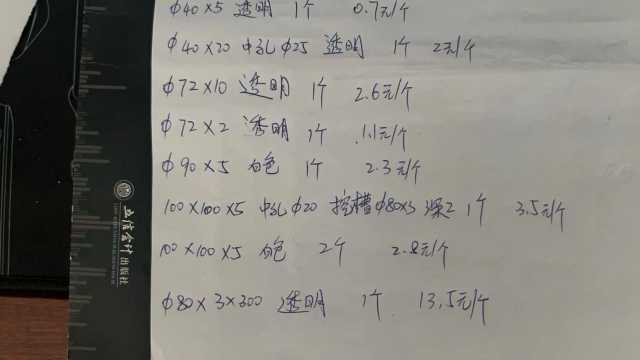 φ40×5 透明 1个 0.7元/个
φ40×20 中孔φ25 透明 1个 2元/个
φ72×10 透明 1个 2.6元/个
φ72×2 透明 1个 1.1元/个
φ90×5 白色 1个 2.3元/个
100×100×5 中孔φ20 挖槽φ80×3 深2 1个 3.5元/个
100×100×5 白色 2个 2.8元/个
φ80×3×300 透明 1个 13.5元/个
立信会计出版社